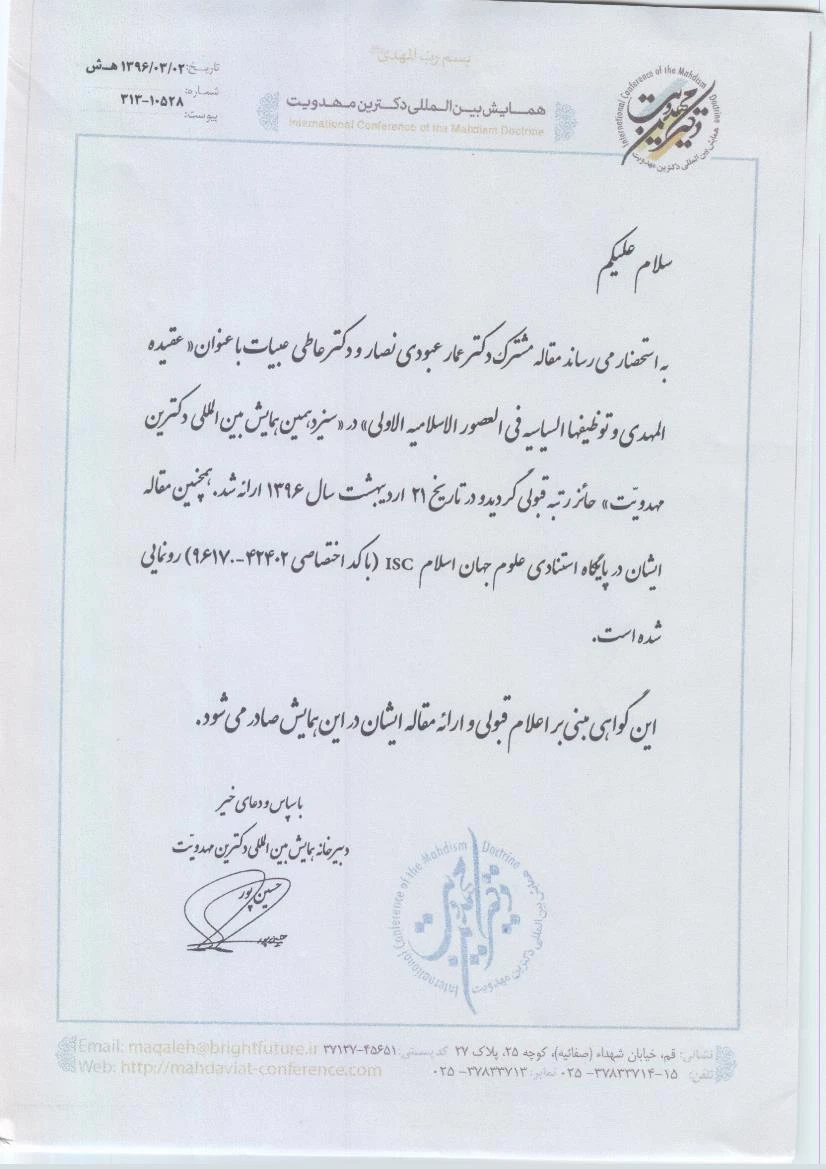 بسم رب المهدی
تاریخ: ۱۳۹۶/۰۳/۰۲ هـ.ش
شماره: ۳۱۳-۱۰۵۲۸
پیوست:
همایش بین‌المللی دکترین مهدویت
International Conference of the Mahdism Doctrine
International Conference of the Mahdism Doctrine
همایش بین المللی دکترین مهدویت
دکترین مهدویت
سلام علیکم
به استحضار می رساند مقاله مشترک دکتر عمار عبودی نصار و دکتر عاطی عبیات با عنوان « عقیده
المهدی و توظیفها السیاسیه فی العصور الاسلامیه الاولی» در « سیزدهمین همایش بین المللی دکترین
مهدویّت» حائز رتبه قبولی گردید و در تاریخ ۲۱ اردیبهشت سال ۱۳۹۶ ارائه شد. همچنین مقاله
ایشان در پایگاه استنادی علوم جهان اسلام ISC (با کد اختصاصی ۴۲۴۰۲-۹۶۱۷۰) رونمایی
شده است.
این گواهی مبنی بر اعلام قبولی و ارائه مقاله ایشان در این همایش صادر می شود.
با سپاس و دعای خیر
دبیرخانه همایش بین المللی دکترین مهدویّت
حسین پور
حسین پور
International Conference of the Mahdism Doctrine
همایش بین المللی دکترین مهدویت
دکترین مهدویت
نشانی: قم، خیابان شهداء (صفائیه)، کوچه ۲۵، پلاک ۲۷ کد پستی: ۴۵۶۵۱-۳۷۱۳۷
تلفن: ۱۵-۳۷۸۳۳۷۱۴-۰۲۵ نمابر: ۳۷۸۳۳۷۱۳-۰۲۵
Email: maqaleh@brightfuture.ir
Web: http://mahdaviat-conference.com